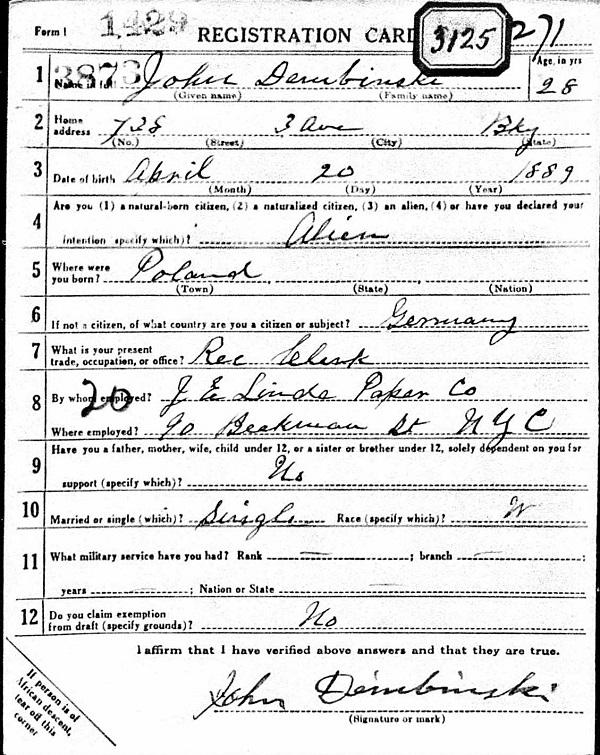 Form 1 1429 REGISTRATION CARD 3125 271
1 3873 Name in full John Dembinski Age, in yrs 28
(Given name) (Family name)
2 Home address 728 3 Ave Bky
(No.) (Street) (City) (State)
3 Date of birth April 20 1889
(Month) (Day) (Year)
4 Are you (1) a natural-born citizen, (2) a naturalized citizen, (3) an alien, (4) or have you declared your
intention specify which)? Alien
5 Where were you born? Poland
(Town) (State) (Nation)
6 If not a citizen, of what country are you a citizen or subject? Germany
7 What is your present trade, occupation, or office? Rec Clerk
8 By whom employed? 20 J E Linde Paper Co
Where employed? 90 Beekman St N Y C
9 Have you a father, mother, wife, child under 12, or a sister or brother under 12, solely dependent on you for
support (specify which)? No
10 Married or single (which)? Single Race (specify which)? W
11 What military service have you had? Rank ; branch ;
years ; Nation or State
12 Do you claim exemption from draft (specify grounds)? No
I affirm that I have verified above answers and that they are true.
John Dembinski
(Signature or mark)
If person is of
African descent,
tear off this
corner